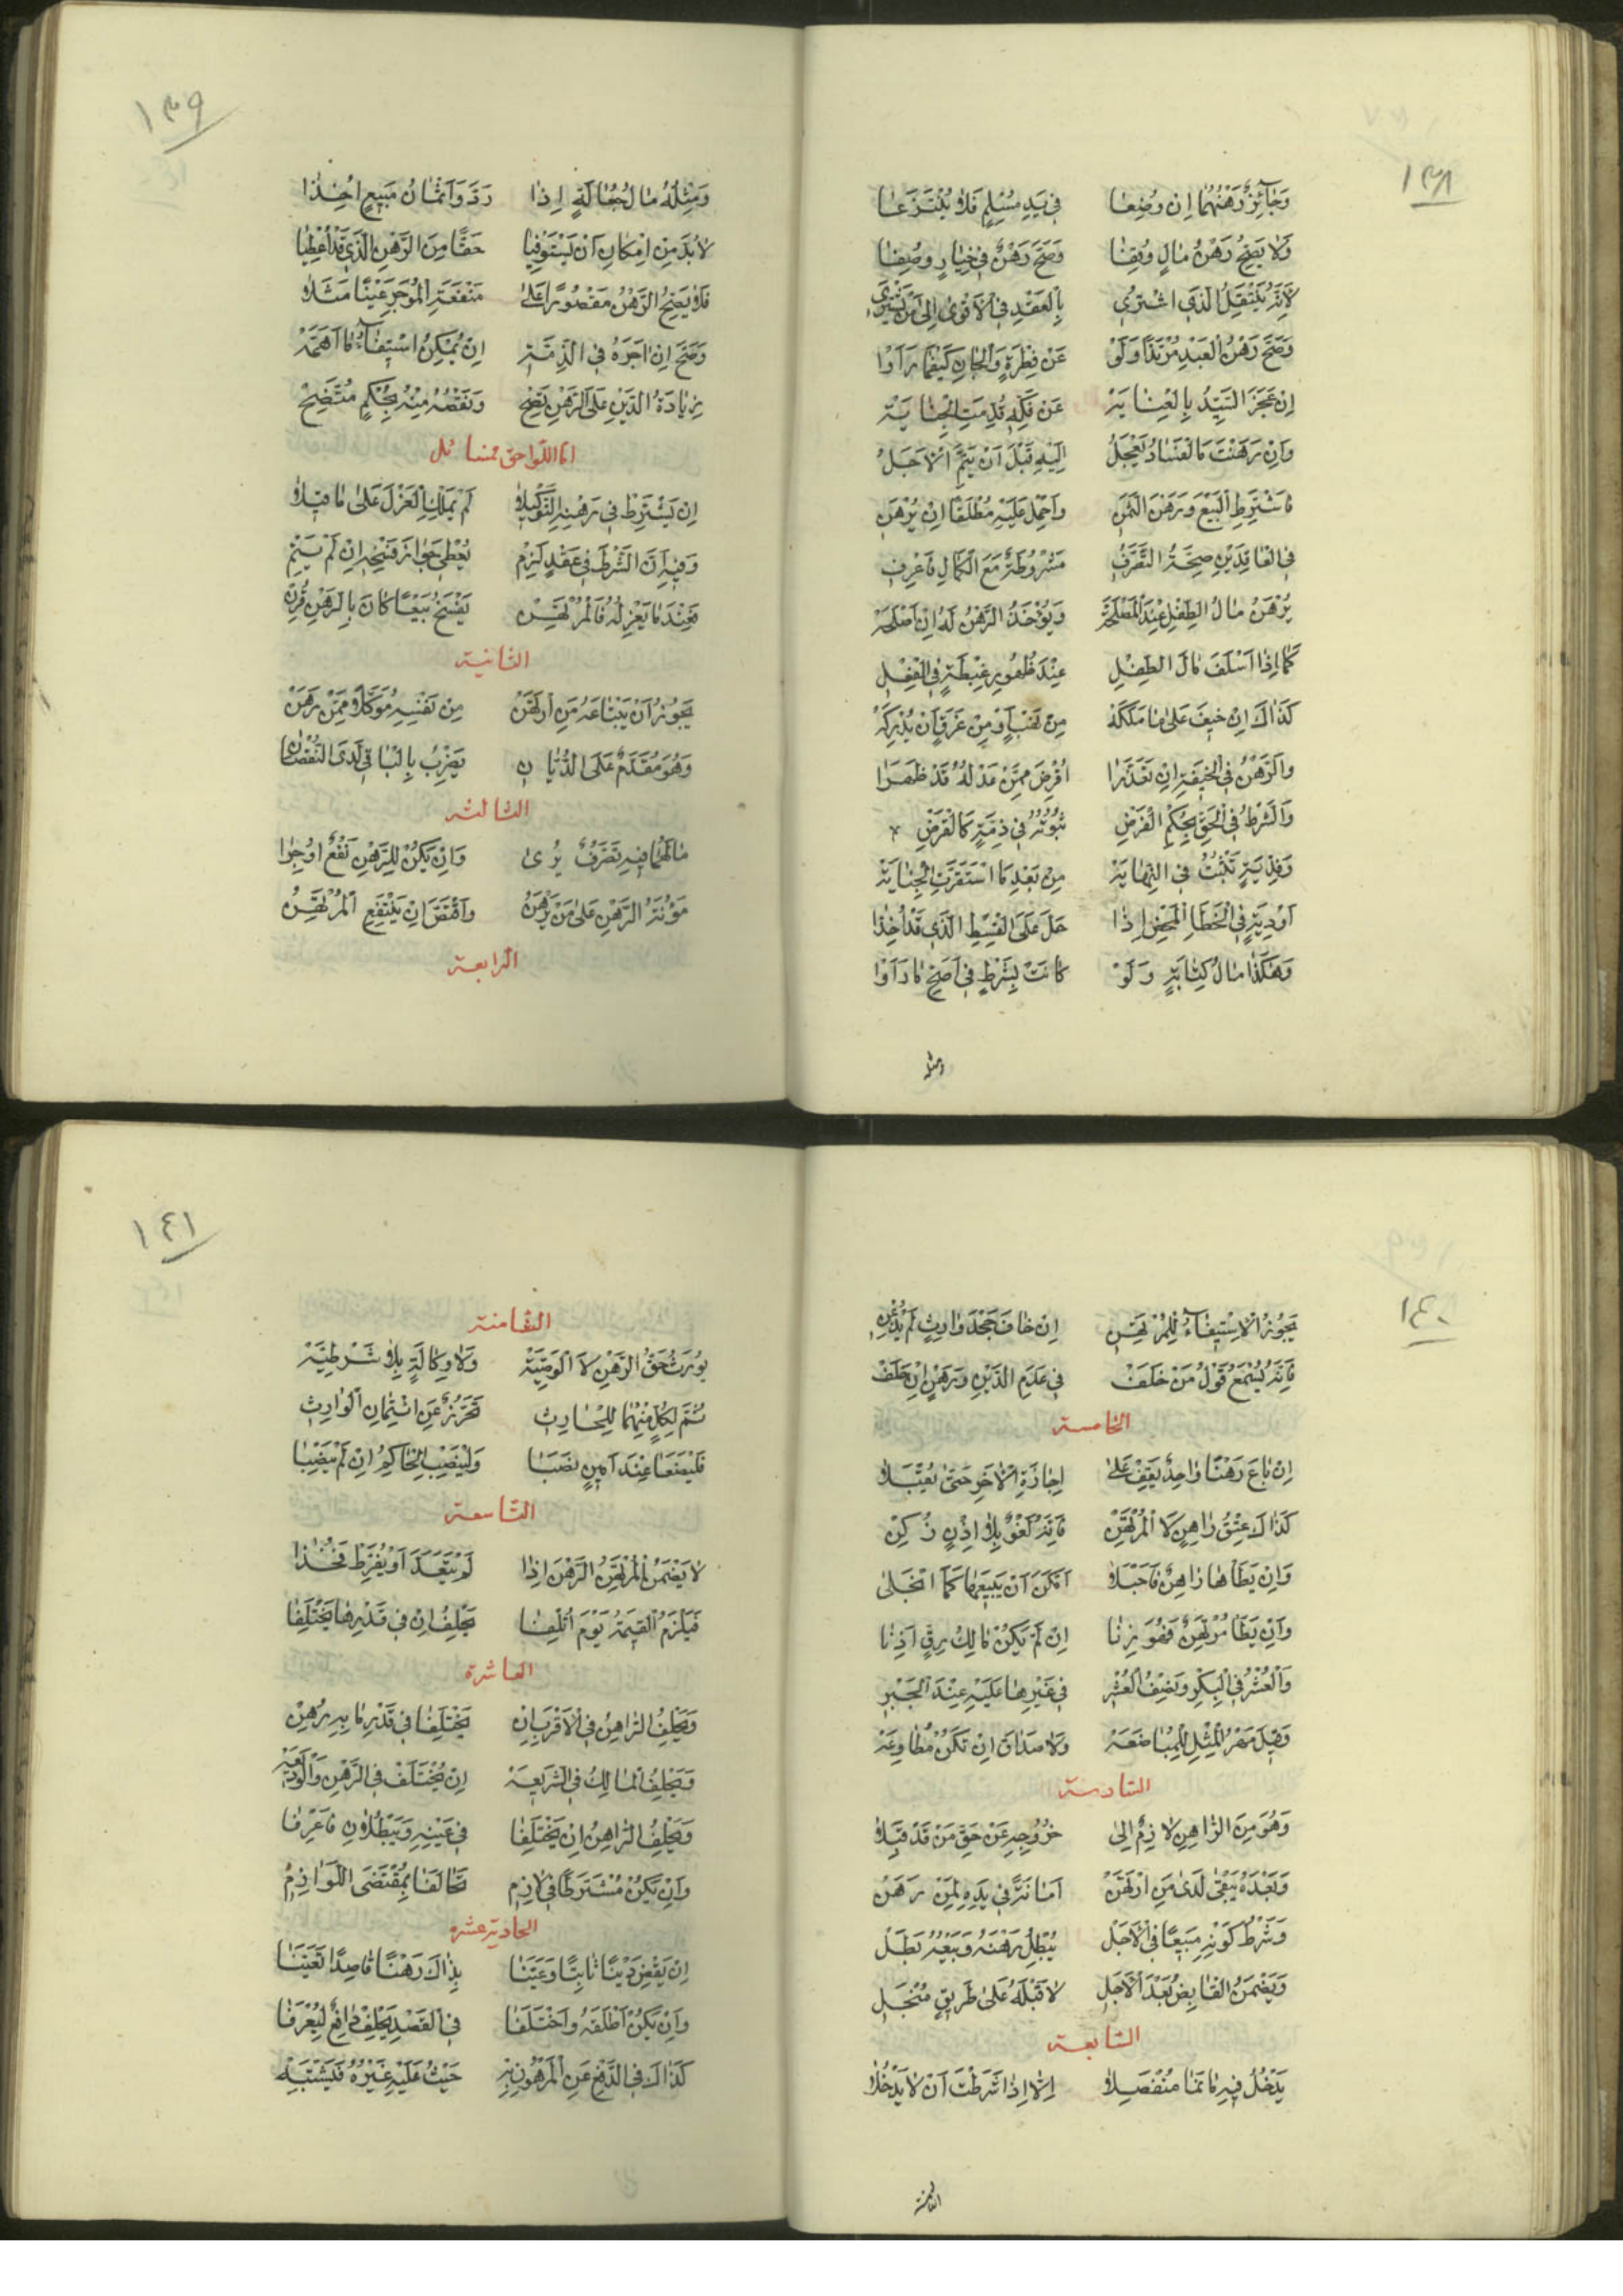 ١٣٨
وَجَائِزٌ رَهْنُهُمَا اِنْ وُضِعَا فِي يَدِ مُسْلِمٍ فَلَا يُنْتَزَعَا
وَلَا يَصِحُّ رَهْنُ مَالٍ وُقِفَا وَصَحَّ رَهْنٌ فِي خِيَارٍ وُصِفَا
لِاَنَّهُ يَنْتَقِلُ الَّذِي اشْتُرِي بِالْعَقْدِ فِي الْاَقْوىٰ اِلىٰ مَنْ يَشْتَرِي
وَصَحَّ رَهْنُ الْعَبْدِ مُرْتَدًّا وَلَوْ عَنْ فِطْرَةٍ وَالْجَانِ كَيْفَمَا رَاَوْا
اِنْ عَجَزَ السَّيِّدُ بِالْعِنَايَةِ عَنْ فَكِّهِ قُدِّمَتِ الْجِنَايَةُ
وَاِنْ رَهَنْتَ مَا الْفَسَادُ يَعْجَلُ اِلَيْهِ قَبْلَ اَنْ يَتِمَّ الْاَجَلُ
فَاشْتَرِطِ الْبَيْعَ وَرَهْنَ الثَّمَنِ وَاحْمِلْ عَلَيْهِ مُطْلَقًا اِنْ يُرْهَنِ
فِي الْعَاقِدَيْنِ صِحَّةُ التَّصَرُّفِ مَشْرُوطَةٌ مَعَ الْكَمَالِ فَاعْرِفِ
يُرْهَنُ مَالُ الطِّفْلِ عِنْدَ الْمَصْلَحَةِ وَيُؤْخَذُ الرَّهْنُ لَهُ اِنْ اَصْلَحَهْ
كَمَا اِذَا اَسْلَفَ مَالَ الطِّفْلِ عِنْدَ ظُهُورِ غِبْطَةٍ فِي الْفِعْلِ
كَذَاكَ اِنْ خِيفَ عَلىٰ مَا مَلَكَهْ مِنْ نَهْبٍ اَوْ مِنْ غَرَقٍ اَنْ يُدْرِكَهْ
وَالرَّهْنُ فِي الْخِيفَةِ اِنْ تَعَذَّرَا اُقْرِضَ مِمَّنْ عَدْلُهُ قَدْ ظَهَرَا
وَالشَّرْطُ فِي الْحَقِّ بِحُكْمِ الْفَرْضِ ثُبُوتُهُ فِي ذِمَّةٍ كَالْقَرْضِ
وَفِدْيَةٍ تَثْبُتُ فِي النِّهَايَةِ مِنْ بَعْدِ مَا اسْتَقَرَّتِ الْجِنَايَةُ
اَوْ دِيَةٍ فِي الْخَطَاِ الْمَحْضِ اِذَا حَلَّ عَلَى الْقِسْطِ الَّذِي قَدْ اُخِذَا
وَهٰكَذَا مَالُ كِتَابَةٍ وَلَوْ كَانَتْ بِشَرْطٍ فِي اَصَحِّ مَا رَاَوْا
ومثله
١٣٩
وَمِثْلُهُ مَالُ الْجُعَالَةِ اِذَا رَدَّ وَاَثْمَانُ مَبِيعٍ اُخِذَا
لَا بُدَّ مِنْ اِمْكَانِ اَنْ يَسْتَوْفِيَا حَقًّا مِنَ الرَّهْنِ الَّذِي قَدْ اُعْطِيَا
فَلَا يَصِحُّ الرَّهْنُ مَقْصُورًا عَلىٰ مَنْفَعَةِ الْمُوجَرِ عَيْنًا مَثَلَا
وَصَحَّ اِنْ اٰجَرَهُ فِي الذِّمَّةِ اِنْ يُمْكِنُ اسْتِيفَاءُ مَا اَهَمَّهْ
زِيَادَةُ الدَّيْنِ عَلَى الرَّهْنِ تَصِحّ وَنَقْصُهُ مِنْهُ بِحُكْمٍ مُتَّضِحْ
اما اللواحق فمسائل
اِنْ يَشْتَرِطْ فِي رَهْنِهِ التَّوْكِيلَا لَمْ يَمْلِكِ الْعَزْلَ عَلىٰ مَا قِيلَا
وَفِيهِ اَنَّ الشَّرْطَ فِي عَقْدٍ لَزِمْ يُعْطِي جَوَازَ فَسْخِهِ اِنْ لَمْ يَتِمْ
فَعِنْدَ مَا يَعْزِلُهُ فَالْمُرْتَهِنْ يَفْسَخُ بَيْعًا كَانَ بِالرَّهْنِ قُرِنْ
الثانية
يَجُوزُ اَنْ يَبْتَاعَهُ مَنِ ارْتَهَنْ مِنْ نَفْسِهِ مُوَكَّلًا مِمَّنْ رَهَنْ
وَهُوَ مُقَدَّمٌ عَلَى الدُّيَّانِ يَضْرِبُ بِالْبَاقِي لَدَى النُّقْصَانِ
الثالثه
مَا لَهُمَا فِيهِ تَصَرُّفٌ يُرىٰ وَاِنْ يَكُنْ لِلرَّهْنِ نَفْعٌ اُوجِرَا
مَؤُنَةُ الرَّهْنِ عَلىٰ مَنْ يَرْهَنُ وَاقْتَصَّ اِنْ يَنْتَفِعِ الْمُرْتَهِنُ
الرابعة
١٤٠
يَجُوزُ الْاِسْتِيفَاءُ لِلْمُرْتَهِنِ اِنْ خَافَ جَحْدَ وَارِثٍ لَمْ يُذْعِنِ
فَاِنَّهُ يُسْمَعُ قَوْلُ مَنْ خَلَفْ فِي عَدَمِ الدَّيْنِ وَرَهْنٍ اِنْ حَلَفْ
الخامسة
اِنْ بَاعَ رَهْنًا وَاحِدٌ يَقِفْ عَلىٰ اِجَازَةِ الْاٰخَرِ حَتّىٰ يُقْبَلَا
كَذَاكَ عِتْقُ رَاهِنٍ لَا الْمُرْتَهِنْ فَاِنَّهُ لَغْوٌ بِلَا اِذْنٍ زُكِنْ
وَاِنْ يَطَاْهَا رَاهِنٌ فَاَحْبَلَا اَمْكَنَ اَنْ يَبِيعَهَا كَمَا انْجَلىٰ
وَاِنْ يَطَا مُرْتَهِنٌ فَهُوَ زِنَا اِنْ لَمْ يَكُنْ مَالِكُ رِقٍّ اَذِنَا
وَالْعُشْرُ فِي الْبِكْرِ وَنِصْفُ الْعُشْرِ فِي غَيْرِهَا عَلَيْهِ عِنْدَ الْجَبْرِ
وَقِيلَ مَهْرُ الْمِثْلِ لِلْمُبَاضَعَةْ وَلَا صَدَاقَ اِنْ تَكُنْ مُطَاوِعَةْ
السادسة
وَهُوَ مِنَ الرَّاهِنِ لَازِمٌ اِلىٰ خُرُوجِهِ عَنْ حَقِّ مَنْ قَدْ قَبِلَا
وَبَعْدَهُ يَبْقىٰ لَدىٰ مَنِ ارْتَهَنْ اَمَانَةً فِي يَدِهِ لِمَنْ رَهَنْ
وَشَرْطُ كَوْنِهِ مَبِيعًا فِي الْاَجَلْ يُبْطِلُ رَهْنَهُ وَبَيْعُهُ بَطَلْ
وَيَضْمَنُ الْقَابِضُ بَعْدَ الْاَجَلِ لَا قَبْلَهُ عَلىٰ طَرِيقٍ مُنْجَلِ
السابعة
يَدْخُلُ فِيهِ مَا نَمَا مُنْفَصِلَا اِلَّا اِذَا شَرَطْتَ اَنْ لَا يَدْخُلَا
الثامنة
١٤١
الثامنة
يُورَثُ حَقُّ الرَّهْنِ لَا الْوَصِيَّةْ وَلَا وِكَالَةٍ بِلَا شَرْطِيَّةْ
ثُمَّ لِكُلٍّ مِنْهُمَا لِلْحَادِثِ تَحَرُّزٌ عَنِ ائْتِمَانِ الْوَارِثِ
فَلْيَضَعَا عِنْدَ اَمِينٍ نَصَبَا وَلْيَنْصِبِ الْحَاكِمُ اِنْ لَمْ يَنْصِبَا
التاسعة
لَا يَضْمَنُ الْمُرْتَهِنُ الرَّهْنَ اِذَا لَمْ يَتَعَدَّ اَوْ يُفَرِّطْ فَخُذَا
فَيَلْزَمُ الْقِيمَةُ يَوْمَ اُتْلِفَا يَحْلِفُ اِنْ فِي قَدْرِهَا يَخْتَلِفَا
العاشرة
وَيَحْلِفُ الرَّاهِنُ فِي الْاَقْرَبِ اِنْ يَخْتَلِفَا فِي قَدْرِ مَا بِهِ رُهِنْ
وَيَحْلِفُ الْمَالِكُ فِي الشَّرِيعَةْ اِنْ يُخْتَلَفْ فِي الرَّهْنِ وَالْوَدِيعَةْ
وَيَحْلِفُ الرَّاهِنُ اِنْ يَخْتَلِفَا فِي عَيْنِهِ وَيَبْطُلَانِ فَاعْرِفَا
وَاِنْ يَكُنْ مُشْتَرَطًا فِي لَازِمِ تَحَالَفَا بِمُقْتَضَى اللَّوَازِمِ
الحادية عشره
اِنْ يَقْضِ دَيْنًا ثَابِتًا وَعَيَّنَا بِذَاكَ رَهْنًا قَاصِدًا تَعَيَّنَا
وَاِنْ يَكُنْ اَطْلَقَهُ وَاخْتَلَفَا فِي الْقَصْدِ يَحْلِفْ دَافِعٌ لِيُعْرَفَا
كَذَاكَ فِي الدَّفْعِ عَنِ الْمَرْهُونِ بِهْ حَيْثُ عَلَيْهِ غَيْرُهُ فَيَشْتَبِهْ